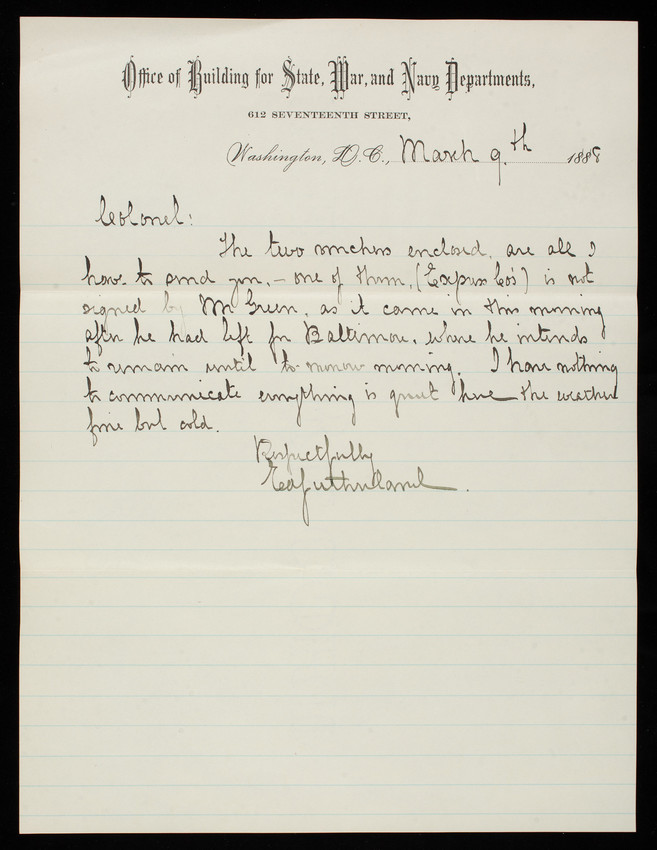 Office of Building for State, War, and Navy Departments,
612 SEVENTEENTH STREET,
Washington, D.C., March 9.th 1888
Colonel:
The two vouchers enclosed, are all I
have to send you, – one of them, (Express Co's) is not
signed by Mr Green, as it came in this morning
after he had left for Baltimore, where he intends
to remain until to-morrow morning. I have nothing
to communicate everything is quiet here – the weather
fine but cold.
Respectfully